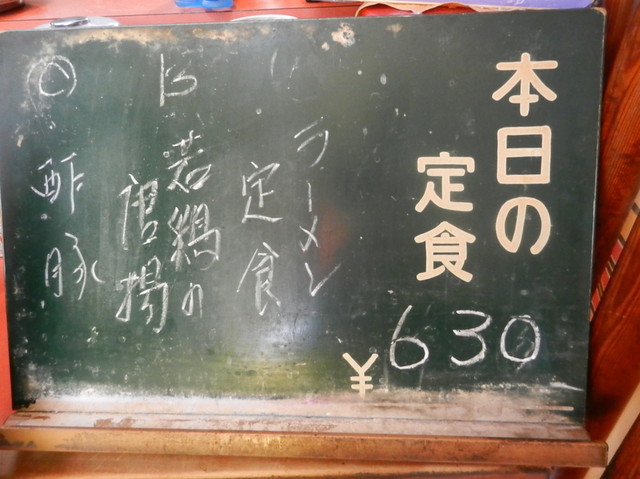 本日の
定食
¥630
ラーメン
定食
B
若鶏の
唐揚
C
酢豚